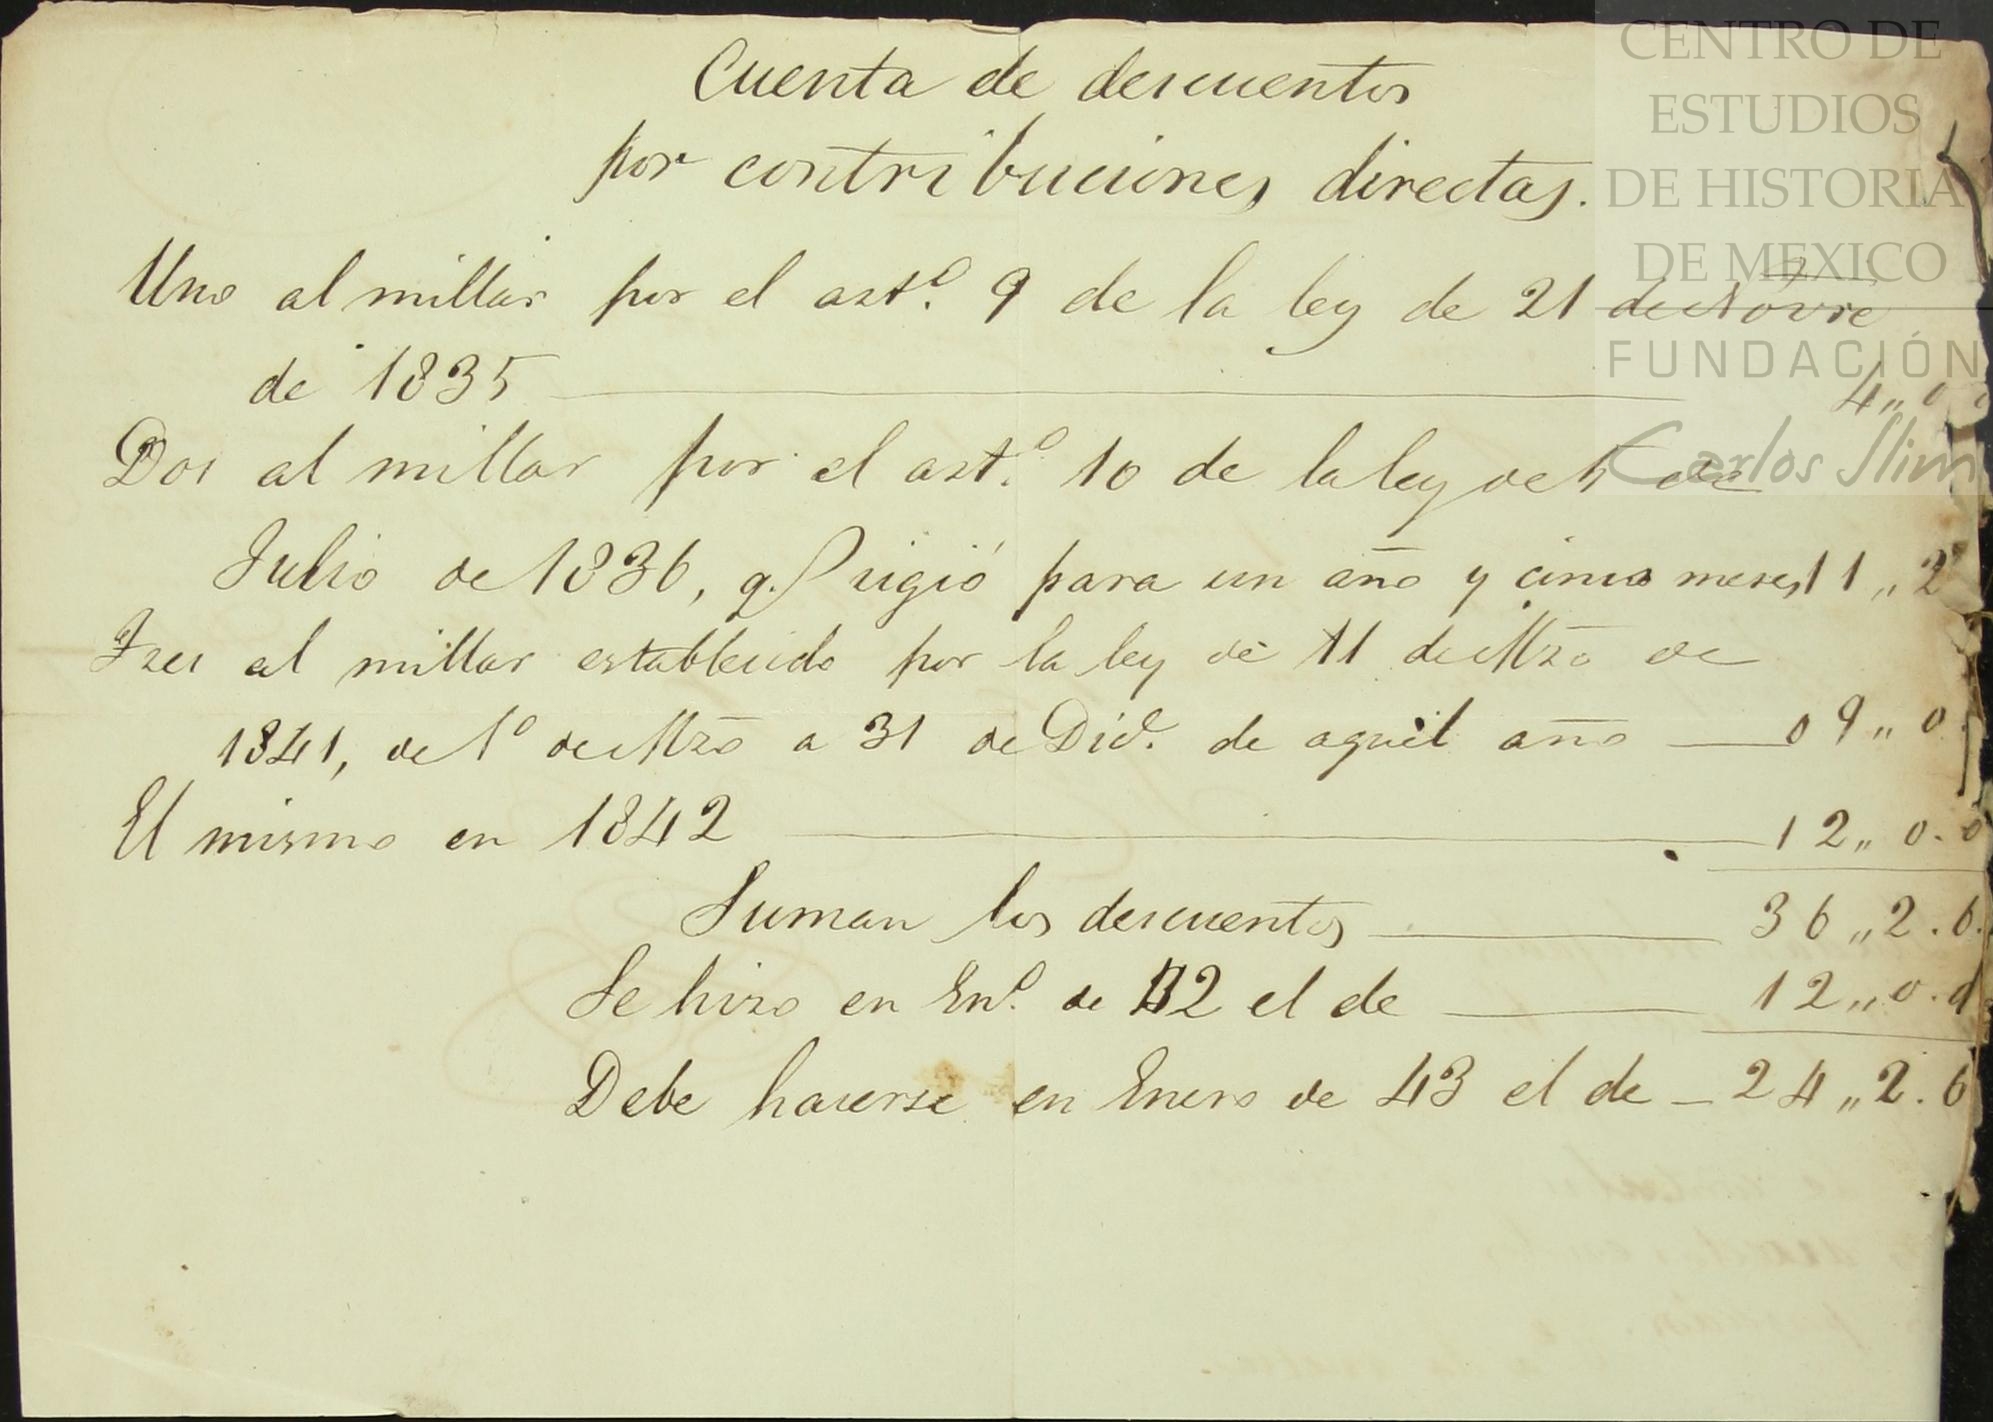 Cuenta de descuentos
por contribuciones directas.
Uno al millar por el art.o 9 de la ley de 21 de Novre
de 1835 4,, 0
Dos al millar por el art.o 10 de la ley de 5 de
Julio de 1836, q. rigió para un año y cinco meses 11,, 2
Tres al millar establecido por la ley de 11 de Mzo de
1841, de 1o de Mzo a 31 de Dic.e de aquel año 09,, 0
El mismo en 1842 12,, 0. 0
Suman los descuentos 36,, 2. 6.
Se hizo en En.o de 42 el de 12,, 0. 0
Debe hacerse en Enero de 43 el de 24,, 2. 6
CENTRO DE
ESTUDIOS
DE HISTORIA
DE MEXICO
FUNDACIÓN
Carlos Slim